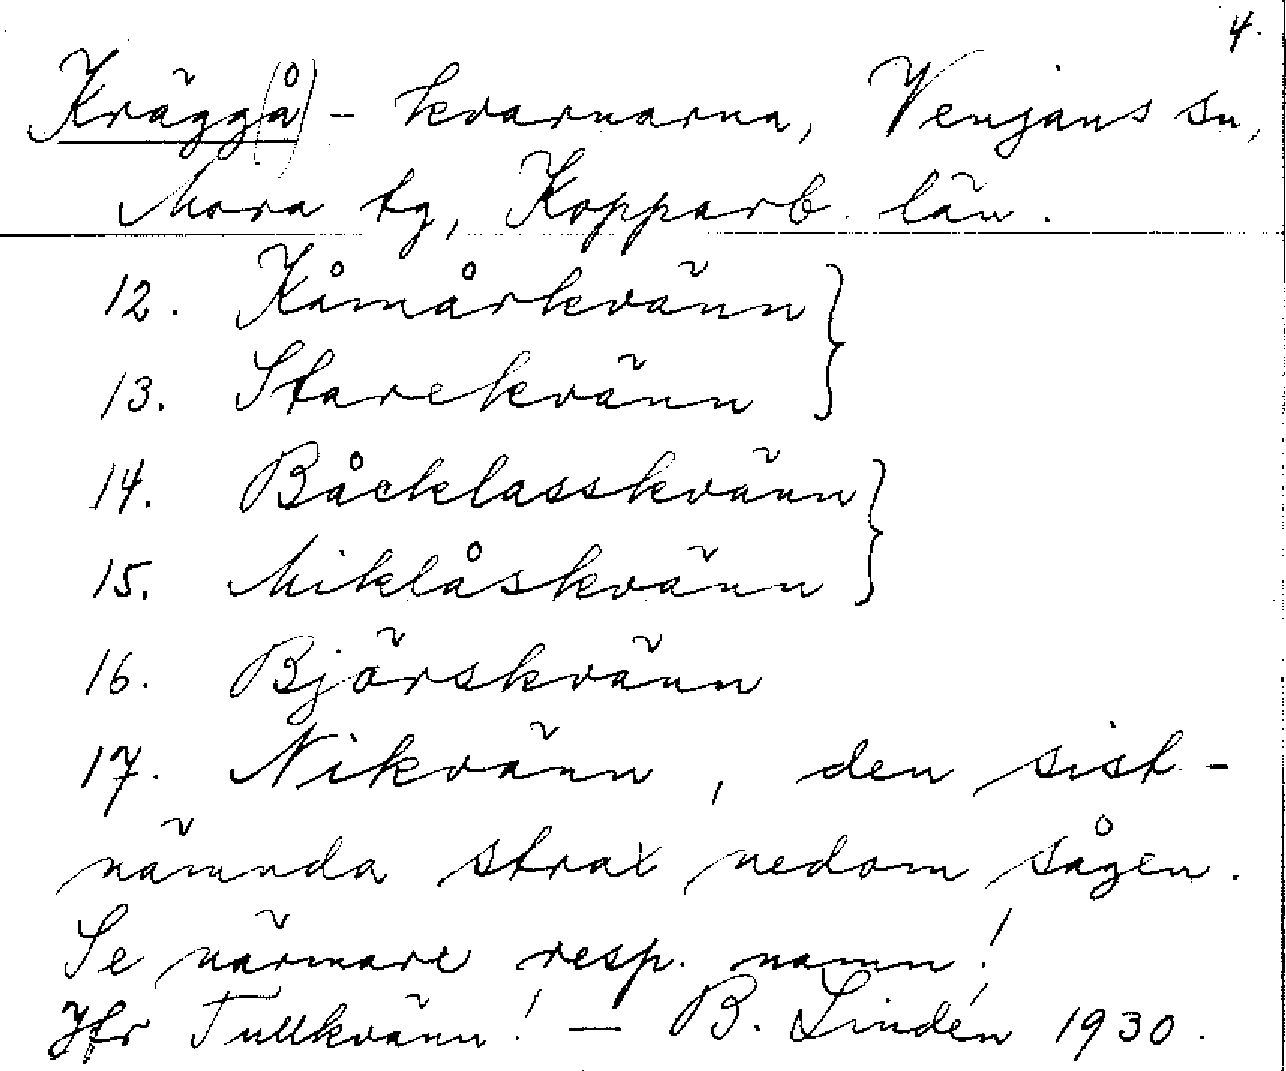 4.
Krägg(å)-kvarnarna, Venjans sn,
Mora tg, Kopparb. län.
12. Kåmårkvänn }
13. Starekvänn
14. Båcklasskvänn }
15. Miklåskvänn
16. Björskvänn
17. Nikvänn, den sist-
nämnda strax nedom sågen.
Se närmare resp. namn!
Jfr Tullkvänn! — B. Lindén 1930.